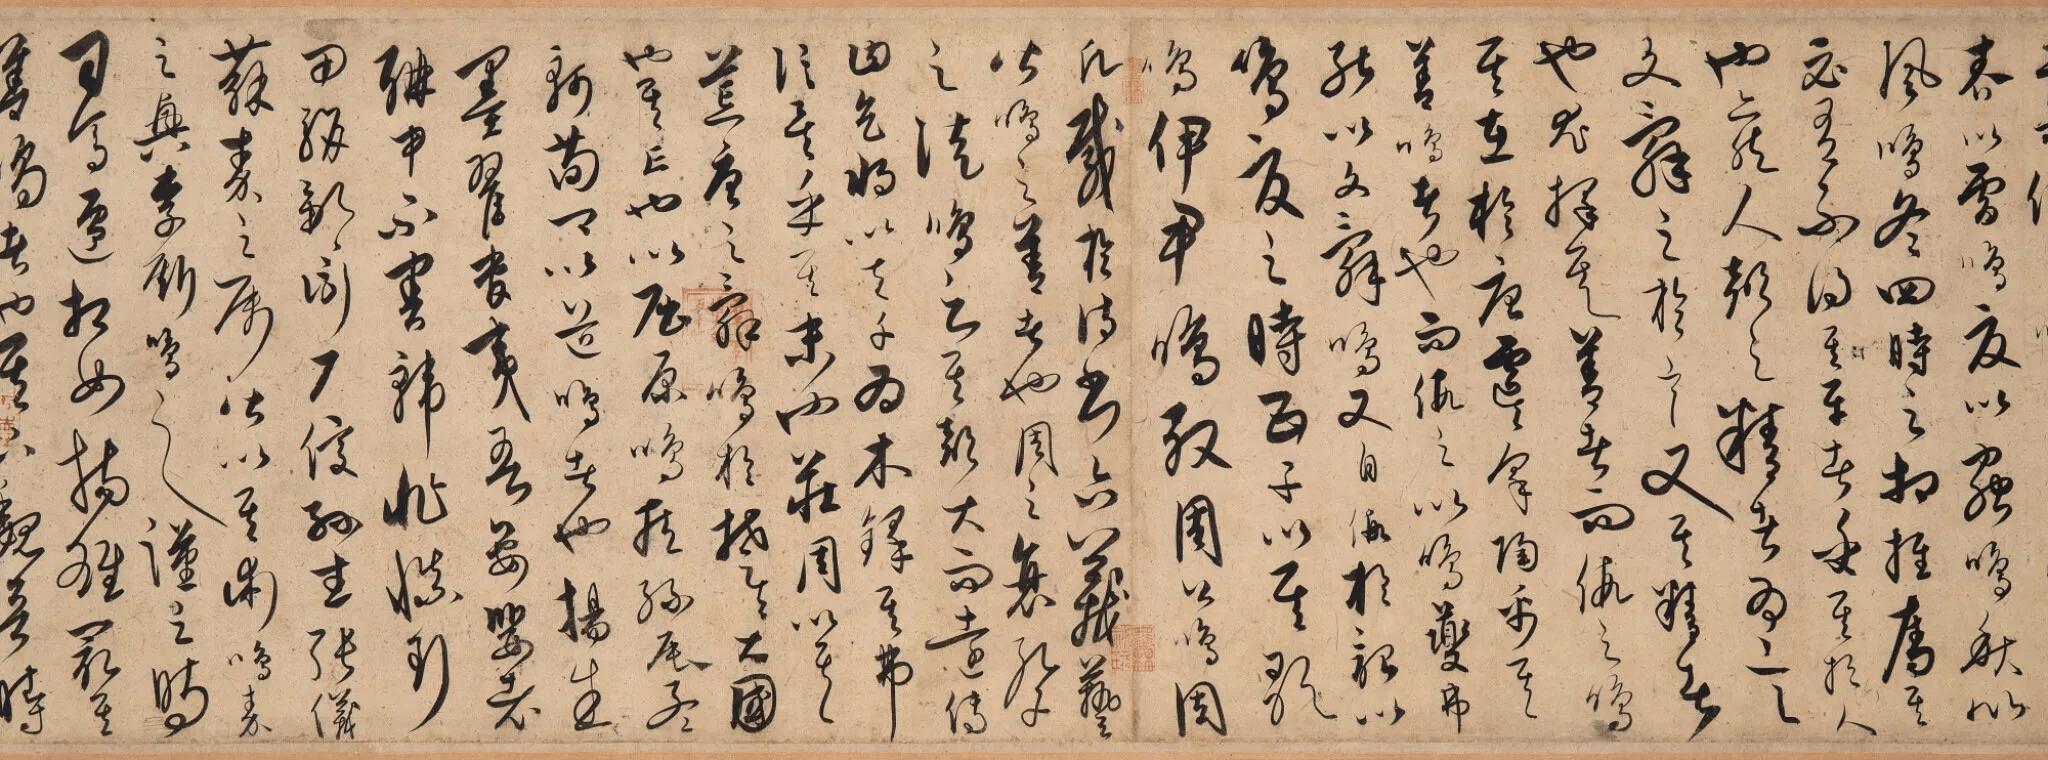 春以雷鳴夏以蟲鳴秋以
風鳴冬四時之相推奪其
必有不得其平者乎其於人
也亦然人聲之精者為言
文辭之於言又其精者
也尤擇其善者而假之鳴
其在於唐虞咎陶禹其
善鳴者也而假之以鳴夔弗
能以文辭鳴又自假於韶以
鳴夏之時五子以其歌
鳴伊尹鳴殷周公鳴周
凡載於詩書六藝藝
皆鳴之善者也周之衰孔子
之徒鳴之其聲大而遠傳
曰天將以夫子為木鐸其弗
信矣乎其末也莊周以其
荒唐之辭鳴於楚楚大國
也其亡也以屈原鳴臧孫辰孟
軻荀卿以道鳴者也楊朱
墨翟管夷吾晏嬰老
聃申不害韓非慎到
田駢鄒衍尸佼孫武張儀
蘇秦之屬皆以其術鳴秦
之興李斯鳴之漢之時
司馬遷相如揚雄最其
善鳴者也其下魏晉時